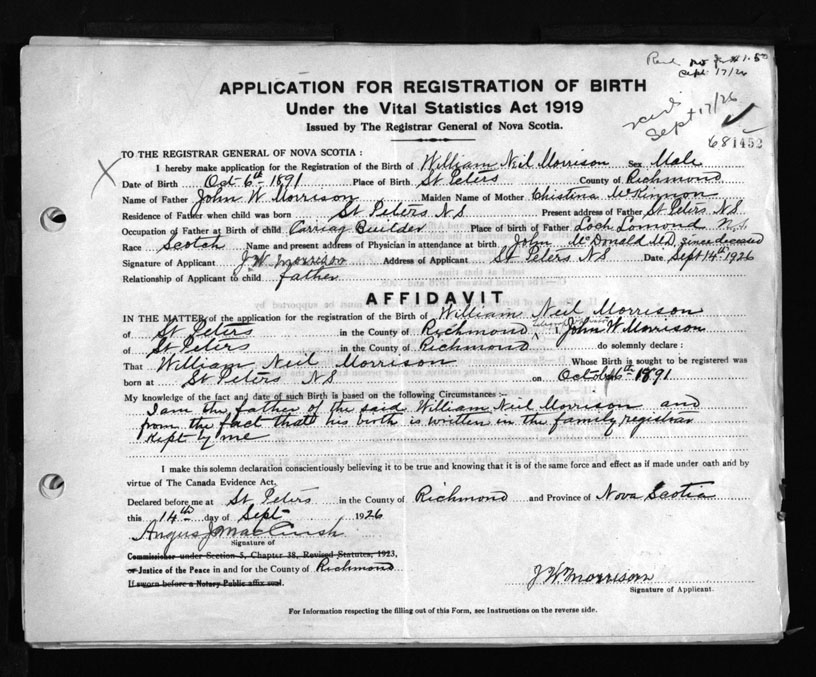 Sept 17/26
APPLICATION FOR REGISTRATION OF BIRTH
Under the Vital Statistics Act 1919
Issued by The Registrar General of Nova Scotia.
Sept 17/26
681452
TO THE REGISTRAR GENERAL OF NOVA SCOTIA :
I hereby make application for the Registration of the Birth of William Neil Morrison Sex Male
Date of Birth Oct 6th 1891 Place of Birth St Peters County of Richmond
Name of Father John W Morrison Maiden Name of Mother Christena McKinnon
Residence of Father when child was born St Peters N S Present address of Father St Peters N S
Occupation of Father at Birth of child Carriag Builder Place of birth of Father Loch Lomond
Race Scotch Name and present address of Physician in attendance at birth John McDonald M.D. since deceased
Signature of Applicant J W Morrison Address of Applicant St Peters N S Date Sept 14th 1926
Relationship of Applicant to child father
AFFIDAVIT
IN THE MATTER of the application for the registration of the Birth of William Neil Morrison
of St Peters in the County of Richmond I, John W Morrison
of St Peters in the County of Richmond do solemnly declare :
That William Neil Morrison Whose Birth is sought to be registered was
born at St Peters N S on October 6th 1891
My knowledge of the fact and date of such Birth is based on the following Circumstances :—
I am the father of the said William Neil Morrison and
from the fact that his birth is written in the family registrar
kept by me
I make this solemn declaration conscientiously believing it to be true and knowing that it is of the same force and effect as if made under oath and by
virtue of The Canada Evidence Act,
Declared before me at St Peters in the County of Richmond and Province of Nova Scotia
this 14th day of Sept 1926
Angus J MacCuish
Signature of
Commissioner under Section 5, Chapter 38, Revised Statutes, 1923,
or Justice of the Peace in and for the County of Richmond
If sworn before a Notary Public affix seal.
J W Morrison
Signature of Applicant.
For Information respecting the filling out of this Form, see Instructions on the reverse side.